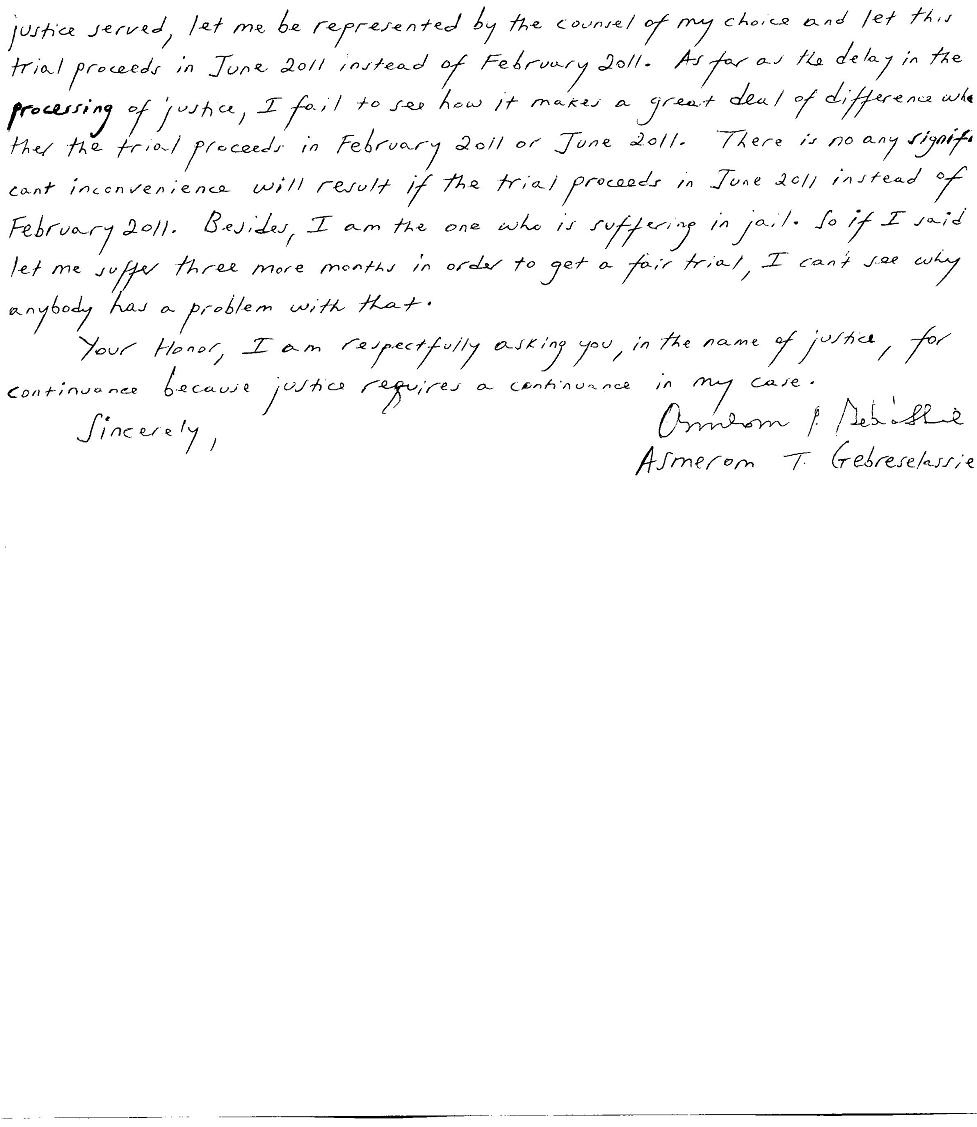 justice served, let me be represented by the counsel of my choice and let this
trial proceeds in June 2011 instead of February 2011. As far as the delay in the
processing of justice, I fail to see how it makes a great deal of difference whe
ther the trial proceeds in February 2011 or June 2011. There is no any signifi
cant inconvenience will result if the trial proceeds in June 2011 instead of
February 2011. Besides, I am the one who is suffering in jail. So if I said
let me suffer three more months in order to get a fair trial, I can't see why
anybody has a problem with that.
Your Honor, I am respectfully asking you, in the name of justice, for
continuance because justice requires a continuance in my case.
Sincerely,
Asmerom T. Gebreselassie